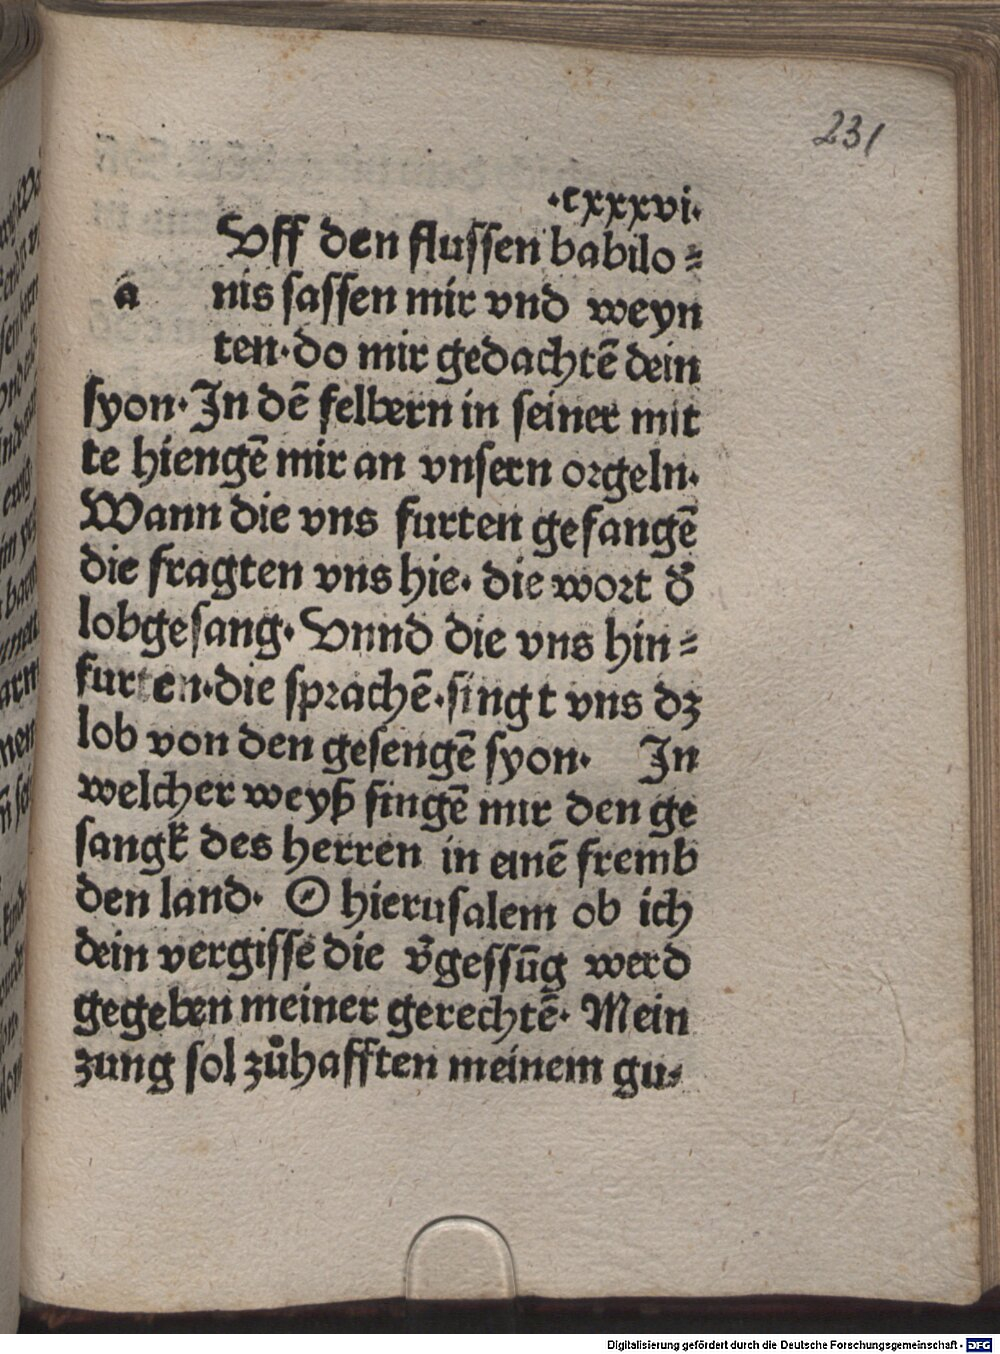 231
·cxxxvi·
Uff den flussen babilo⸗
a nis sassen mir vnd weyn
ten·do mir gedachtē dein
syon· In dē felbern in seiner mit
te hiengē mir an vnsern orgeln·
Wann die vns furten gefangē
die fragten vns hie· die wort d̕
lobgesang· Vnnd die vns hin⸗
furten·die sprachē·singt vns dz
lob von den gesengē syon· In
welcher weyß singē mir den ge
sangk des herren in einē fremb
den land· O hierusalem ob ich
dein vergisse die v̕gessūg werd
gegeben meiner gerechtē· Mein
zung sol zůhafften meinem gu⸗
Digitalisierung gefördert durch die Deutsche Forschungsgemeinschaft - DFG